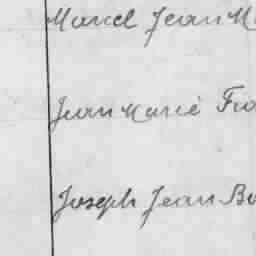 Marcel Jean M
Jean Marie Fra
Joseph Jean Ba